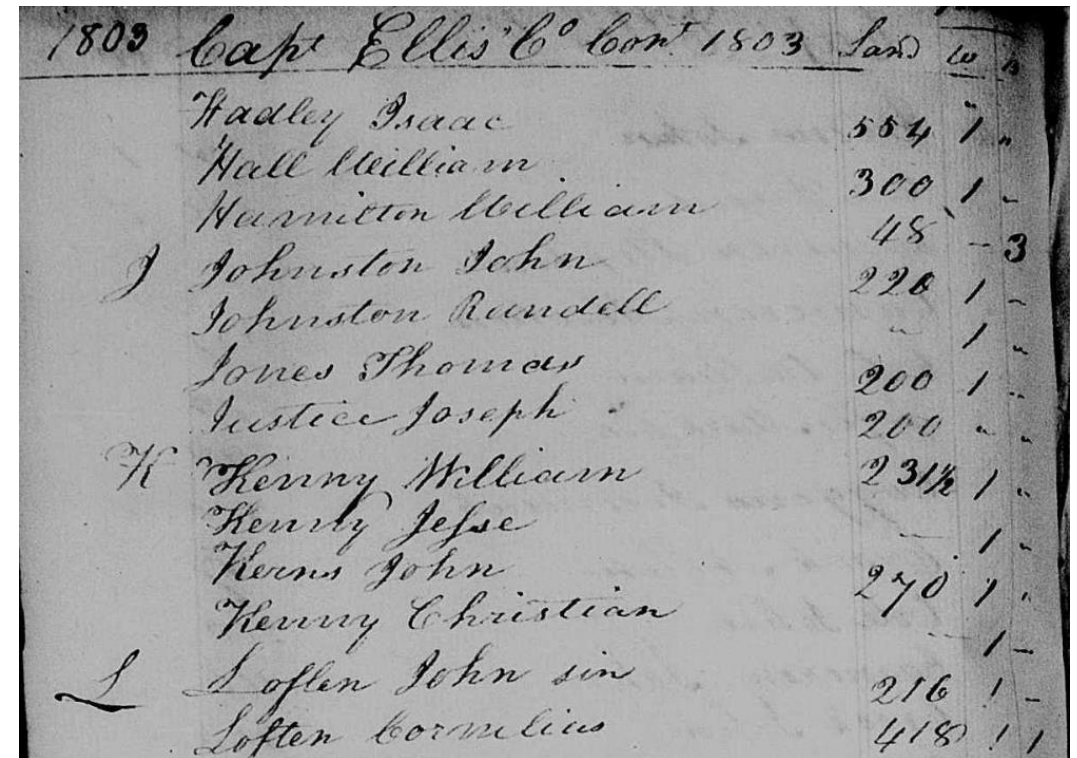 1803 Capt Ellis' Co Cont 1803 Land W B
Hadley Isaac 554 1 "
Hall William 300 1 "
Hamilton William 48 – 3
J Johnston John 220 1 –
Johnston Randell – 1 "
Jones Thomas 200 1 "
Justice Joseph 200 " "
K Kenny William 231½ 1 "
Kenny Jesse — 1 "
Kerns John 270 1 "
Kenny Christian — 1 –
L Loften John sin 216 1 –
Loften Cornelius 418 1 1